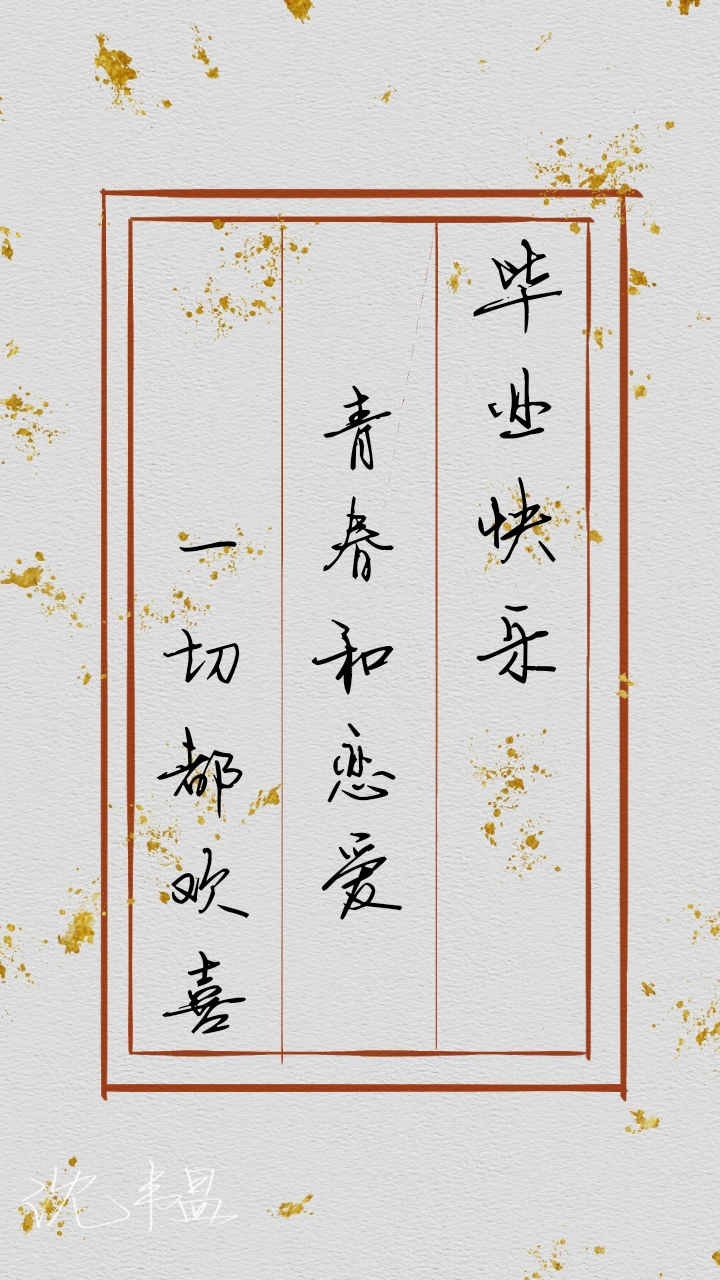 毕业快乐
青春和恋爱
一切都欢喜